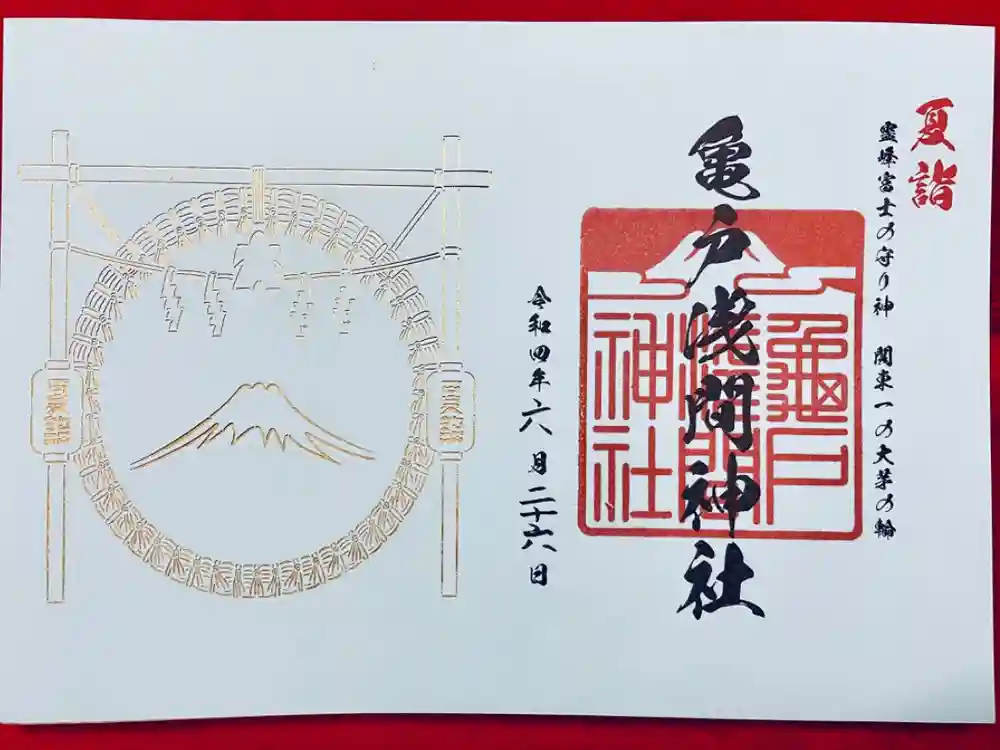 夏詣
霊峰富士の守り神 関東一の大茅の輪
亀戸浅間神社
亀戸
浅間
神社
令和四年六月二十六日
夏詣
夏詣